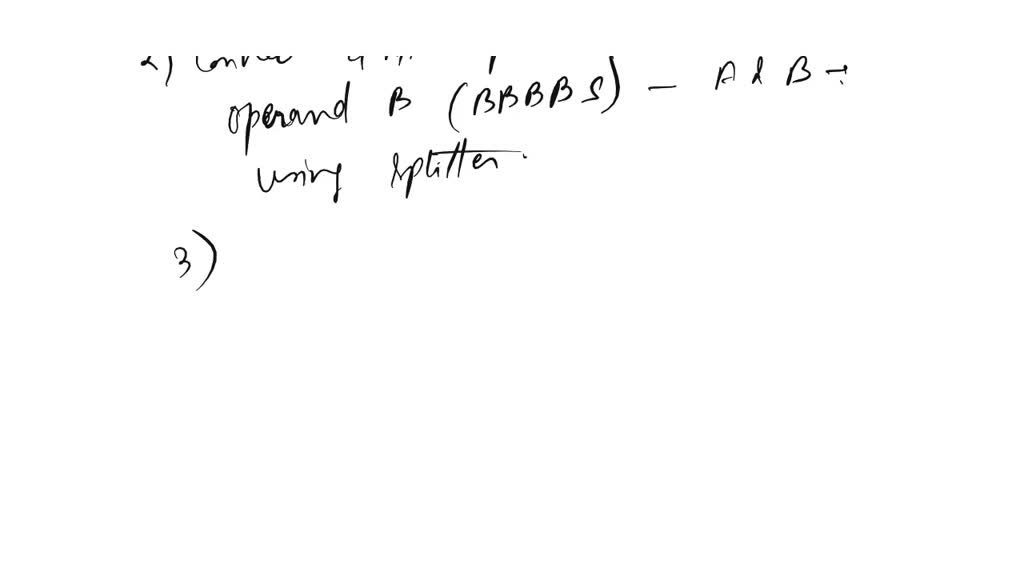 2)
operand B (BBBBS) - A & B →
using splitter.
3)